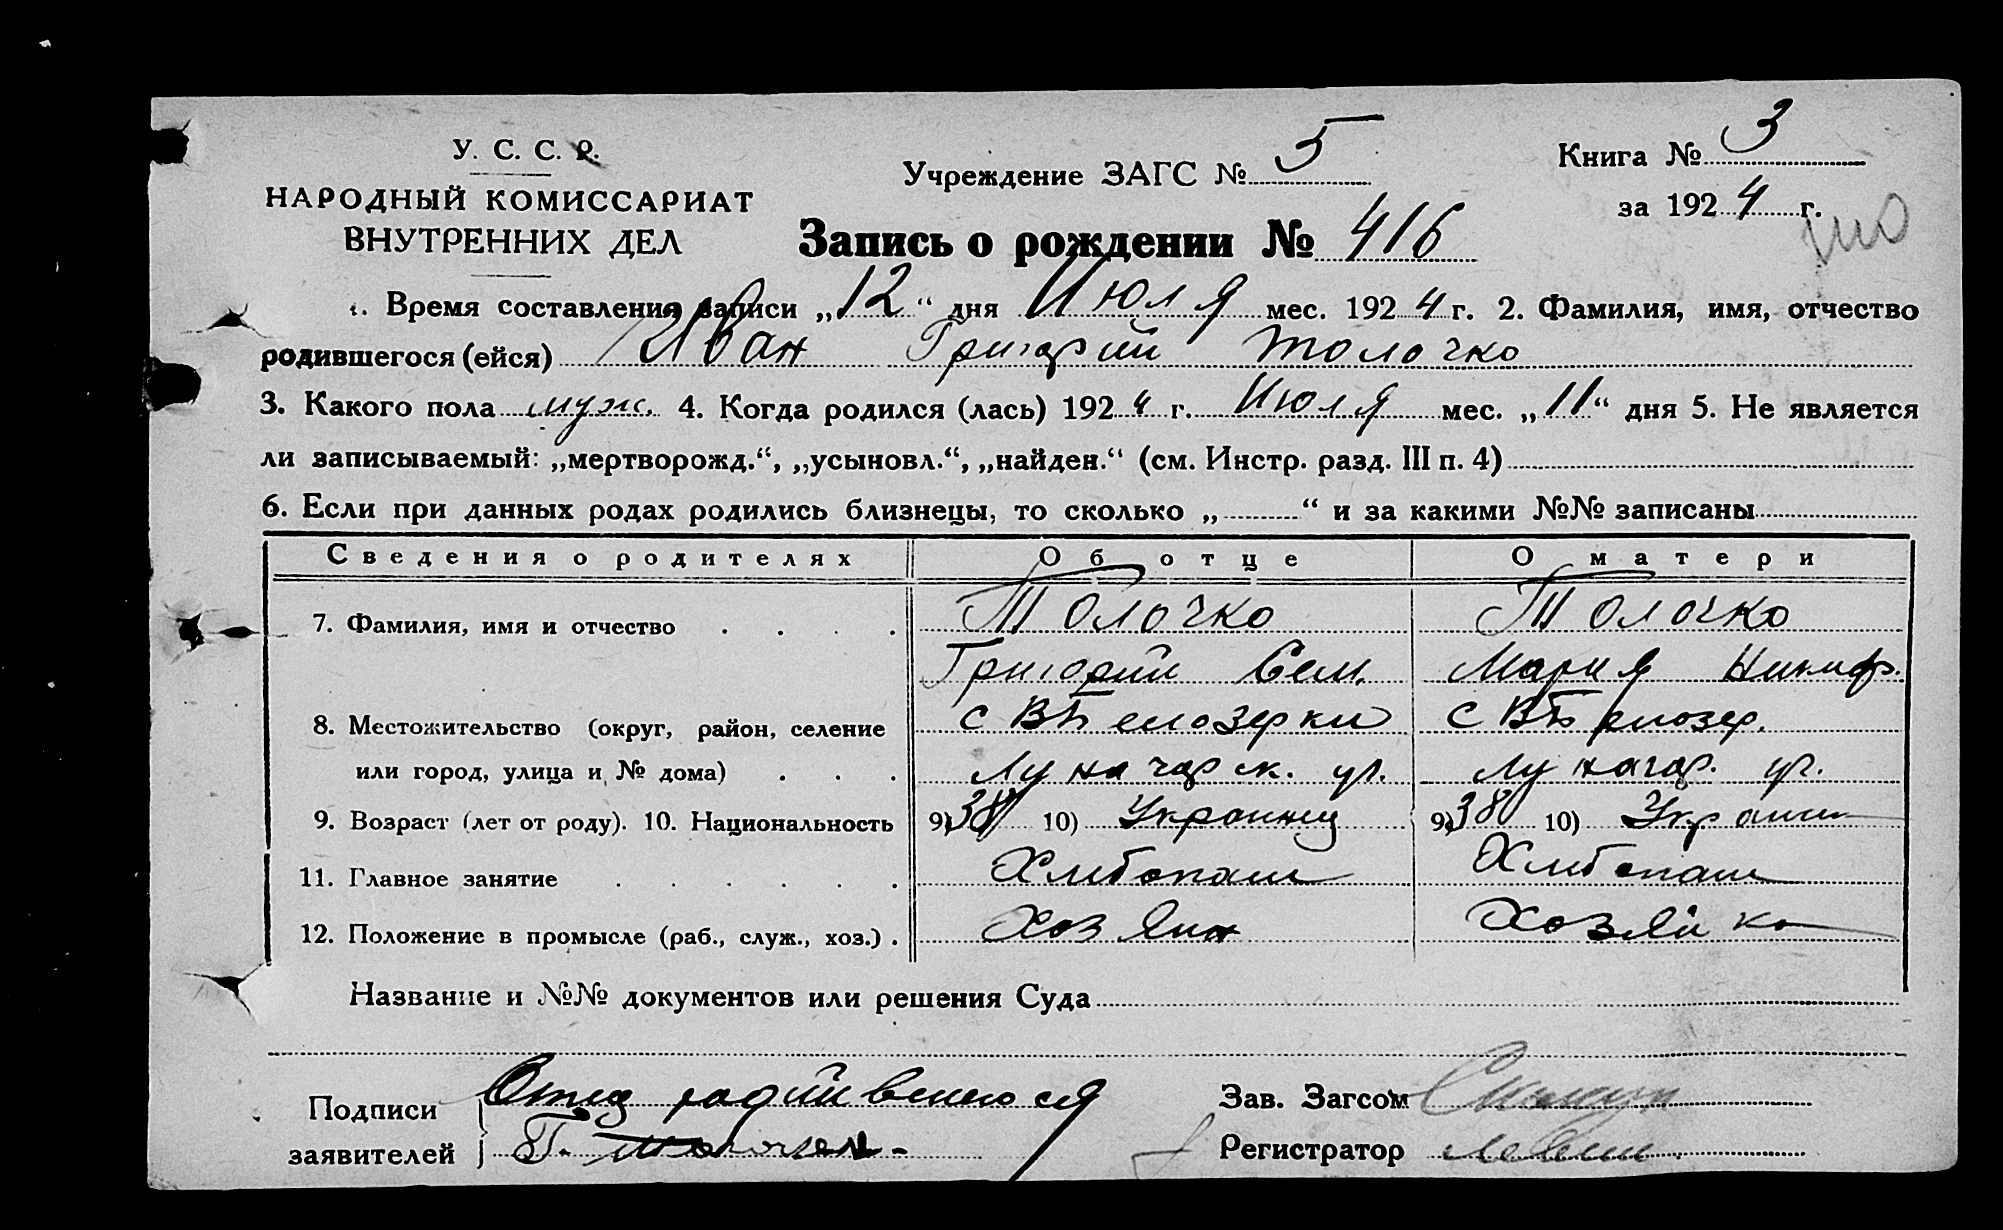 У. С. С. Р.
НАРОДНЫЙ КОМИССАРИАТ
ВНУТРЕННИХ ДЕЛ
Учреждение ЗАГС № 5
Книга № 3
за 1924 г.
Запись о рождении № 416
1. Время составления записи „12“ дня Июля мес. 1924 г. 2. Фамилия, имя, отчество
родившегося (ейся) Иван Григорий Толочко
3. Какого пола муж. 4. Когда родился (лась) 1924 г. Июля мес. „11“ дня 5. Не является
ли записываемый: „мертворожд.“, „усыновл.“, „найден.“ (см. Инстр. разд. III п. 4)
6. Если при данных родах родились близнецы, то сколько „ “ и за какими №№ записаны
Сведения о родителях Об отце О матери
7. Фамилия, имя и отчество Толочко Толочко
Григорий Сем. Мария Никиф.
8. Местожительство (округ, район, селение с ВБелозерки с ВБелозер.
или город, улица и № дома) Луначарск. ул. Луначар. ул.
9. Возраст (лет от роду). 10. Национальность 9) 38 10) Украинец 9) 38 10) Украин
11. Главное занятие Хлибопаш Хлибопаш
12. Положение в промысле (раб., служ., хоз.) Хозяин Хозяйка
Название и №№ документов или решения Суда
Подписи Отец родившегося Зав. Загсом
заявителей Г. Толочко Регистратор